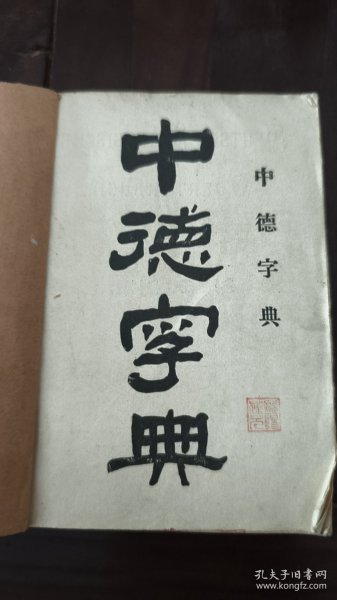 中德字典
中德字典
孔夫子旧书网
www.kongfz.com